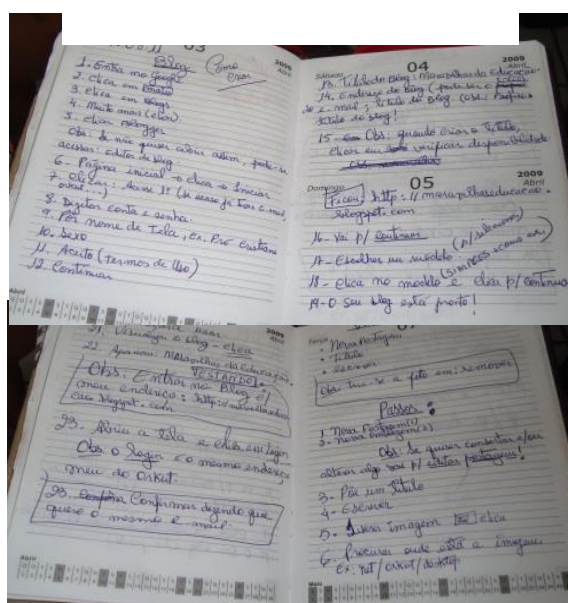 03
Abril
Blog Como criar
1. Entra no Google
2. Clica em mais
3. Clica em Blogs
4. Muito mais (clica)
5. clica Blogger
Obs: Se não quiser abrir assim, pode-se
acessar: editor de blog
6. Página inicial → clica → Iniciar
7. Clicar: Acesse 1º (se acaso já tiver e.mail,
orkut...)
8. Digitar conta e senha.
9. Pôr nome de Tela, Ex. Pró
10. Sexo
11. Aceito (termos de Uso)
12. Continuar
Abril
Sábado 04 2009
Abril
13. Título do Blog: Maravilhas da Educação.
14. Endereço do blog (pode ser o
do e-mail; título do Blog. (Obs:
título do blog!
15. Obs: quando criar o Título,
clicar em verificar disponibilidade
Domingo 05 2009
Abril
Ficou: http://maravilhaseducacao.
blogspot.com
16- Vai p/ continuar
17- Escolher um modelo (p/ selecionar)
18- clica no modelo e clica p/ continuar
19- O seu blog está pronto!
2009
Abril
21. Visualizar o blog - clica
22. Apareceu: Maravilhas da Educação.
TESTANDO.
Obs: Entrar no Blog é/
meu endereço: http://maravilhasedu
cacao.blogspot.com
23. Abriu a tela e clica em login
Obs. o login é o mesmo endereço
meu do orkut.
23. Confirmar dizendo que
quero o mesmo e-mail.
Abril
Terça 07
• Nova Postagem
• Título
• escrever
a foto em: remover
Passos:
1. Nova Postagem(1)
2. Nova Postagem(2)
Obs: Se quiser consertar e/ou
alterar algo vai p/ editar postagem!
3- Pôr um título
4- Escrever
5- Imagem clica
6. Procurar onde está a imagem.
Ex: net/orkut/desktop
Abril